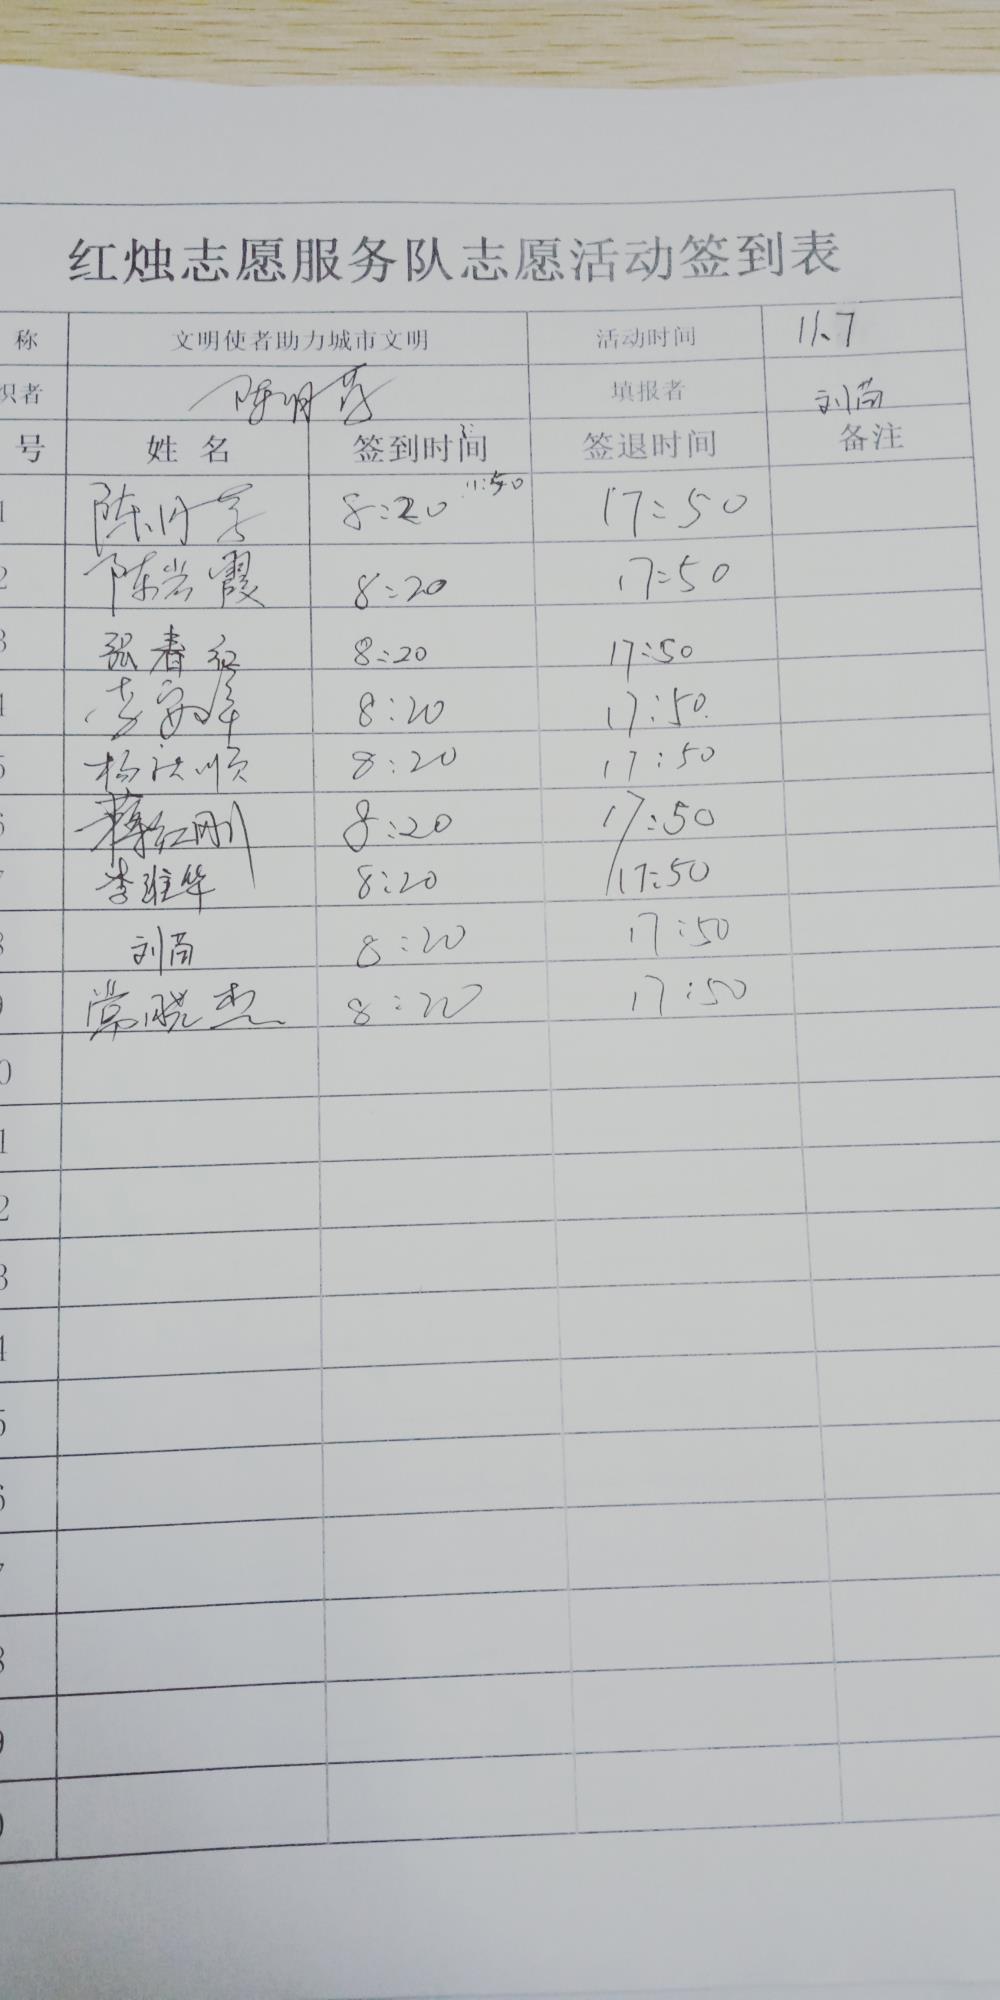 红烛志愿服务队志愿活动签到表
称 文明使者助力城市文明 活动时间 11.7
织者 填报者 刘芮
号 姓名 签到时间 签退时间 备注
1 陈 8:20 11:50 17:50
2 陈岩霞 8:20 17:50
3 张春红 8:20 17:50
4 李 8:20 17:50
5 杨洪顺 8:20 17:50
6 蒋红刚 8:20 17:50
7 李维华 8:20 17:50
8 刘芮 8:20 17:50
9 常晓杰 8:20 17:50
0
1
2
3
4
5
6
7
8
9
0